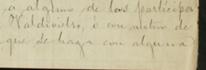 a alguno de los participa
Valdivielso, ó con motivo de
que se haga con alguna